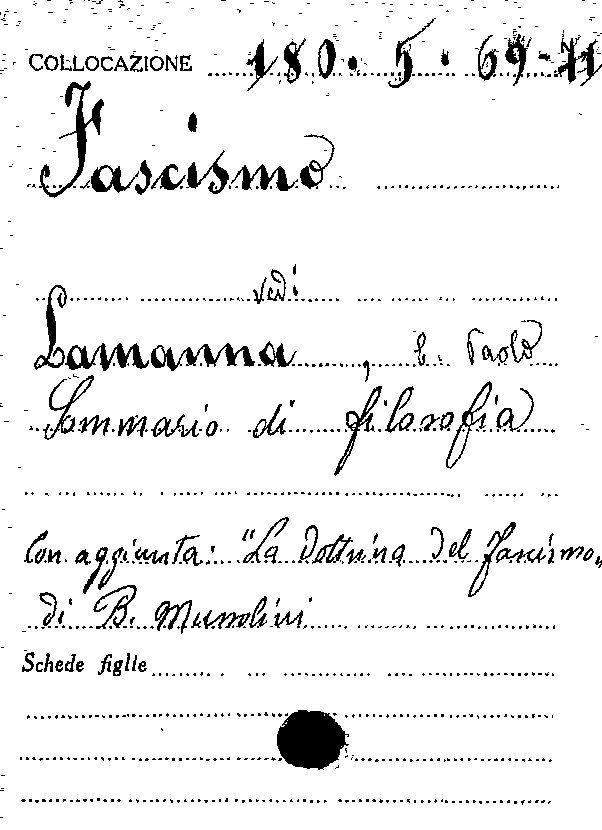 COLLOCAZIONE 180. 5. 69-71
Fascismo
vedi
Lamanna, E. Paolo
Sommario di filosofia
Con aggiunta: "La Dottrina del Fascismo„
di B. Mussolini
Schede figlie